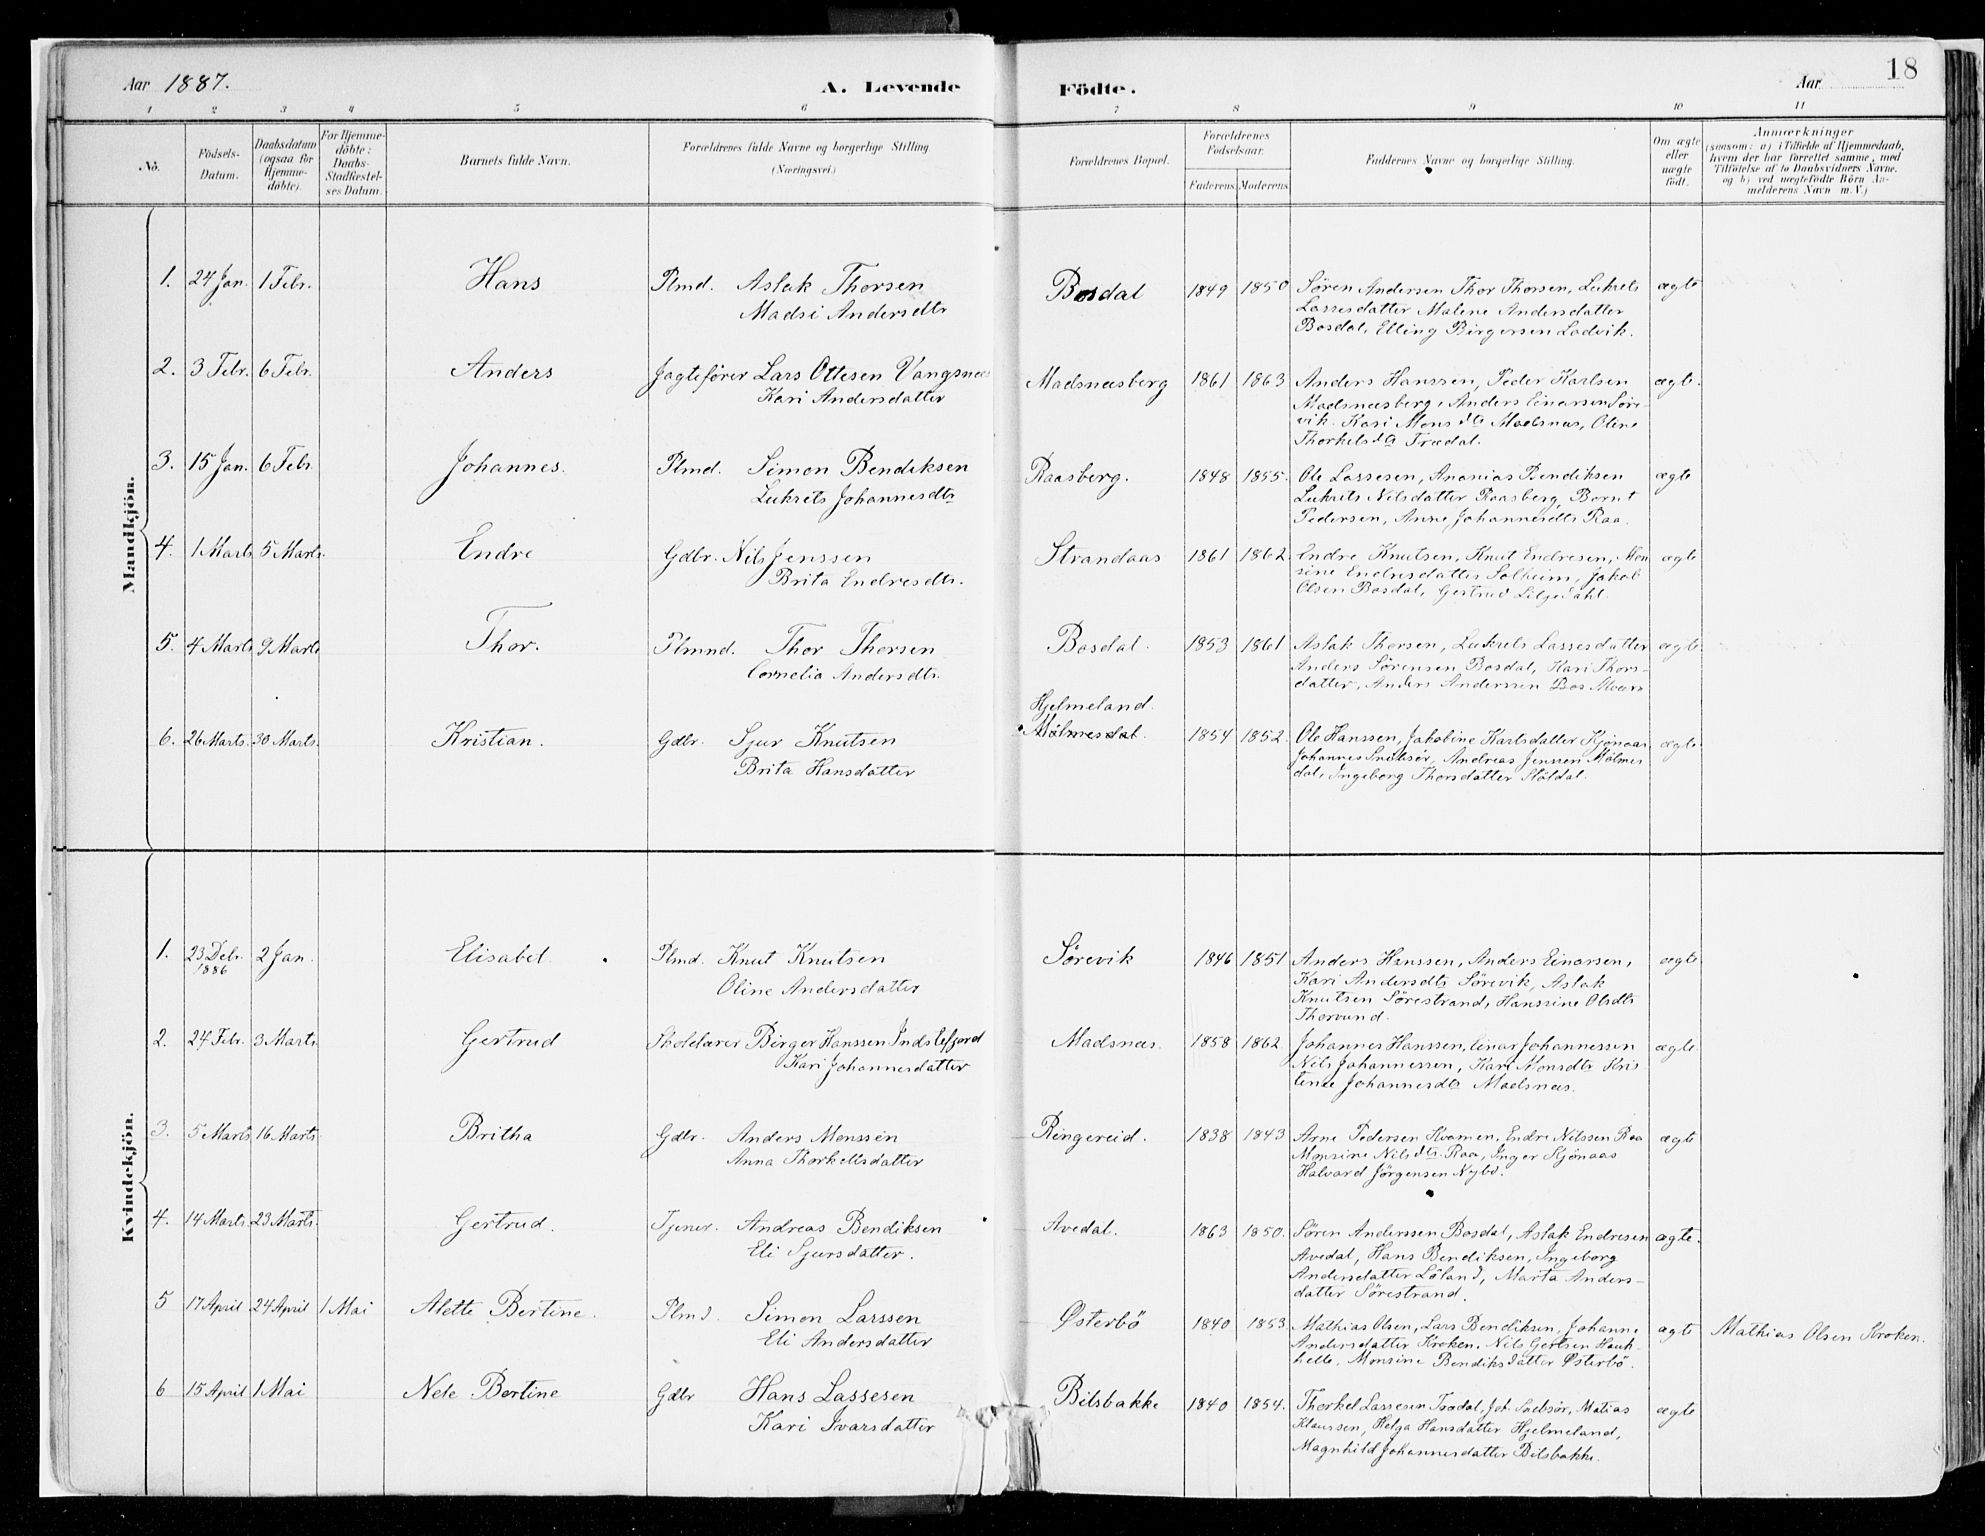 Aar 1887. A. Levende Födte. Aar 18
1 2 3 4 5 6 7 8 9 10 11
No. Födsels-Datum. Daabsdatum (ogsaa for Hjemme-döbte). For Hjemme-döbte: Daabs-Stadfæstel-ses Datum. Barnets fulde Navn. Forældrenes fulde Navne og borgerlige Stilling (Næringsvei.) Forældrenes Bopæl. Forældrenes Födselsaar. Faderens. Moderens. Faddernes Navne og borgerlige Stilling. Om ægte eller uægte födt. Anmærkninger (saasom: a) i Tilfælde af Hjemmedaab, hvem der har forrettet samme, med Tilföielse af to Daabsvidners Navne, og b) ved uægtefödte Börn An-melderens Navn m. V.)
Mandkjön.
1. 24 Jan. 1 Febr. Hans Plmd. Aslak Thorsen Bosdal 1849 1850 Sören Andersen Thor Thorsen, Lukrets ægte
Madsi Andersdtr Lassesdatter Malene Andersdatter
Bosdal, Elling Birgersen Ladvik.
2. 3 Febr. 6 Febr. Anders Jagtefører Lars Ottesen Vangsnæs Madsnæsberg 1861 1863 Anders Hanssen, Peder Karlsen ægte.
Kari Andersdatter Madsnæsberg, Anders Einarsen Søre-
vik. Kari Monsdtr Madsnæs, Oline
Thorkelsdtr Trædal.
3. 15 Jan. 6 Febr. Johannes. Plmd. Simon Bendiksen Raasberg. 1848 1855. Ole Lassesen, Ananias Bendiksen ægte
Lukrets Johannesdtr Lukrets Nilsdatter Raasberg, Bernt
Pedersen, Anne Johannesdtr Raa.
4. 1 Marts 5 Marts. Endre Gdbr. Nils Jenssen Strandaas 1861 1862. Endre Knutsen, Knut Endresen, Mon ægte
Brita Endresdtr. sine Endresdatter Solheim, Jakob
Olsen Bosdal, Gertrud Liljedahl.
5. 4 Marts 9 Marts Thor. Plmnd. Thor Thorsen Bosdal. 1853 1861 Aslak Thorsen, Lukrets Lassesdatter ægte
Cornelia Andersdtr. Anders Sörensen Bosdal, Kari Thors-
datter, Anders Anderssen
Hjelmeland.
6. 26 Marts. 30 Marts. Kristian. Gdbr. Sjur Knutsen Mölmesdal. 1854 1852. Ole Hanssen, Jakobine Karlsdatter Kjönaas ægte
Brita Hansdatter Johannes Andreas Jenssen Mölmes
dal, Ingeborg Thorsdatter Stöldal.
Kvindekjön.
1. 23 Debr. 1886 2 Jan. Elisabet Plmd. Knut Knutsen Sörevik 1846 1851 Anders Hanssen, Anders Einarsen, ægte
Oline Andersdatter Kari Andersdtr Sörevik, Aslak
Knutsen Sörestrand, Hanssine Olsdtr
Thorvund.
2. 24 Febr. 3 Marts. Gertrud Skolelærer Birger Hanssen Indstefjord Madsnæs. 1858 1862 Johannes Hanssen, Einar Johannessen ægte
Kari Johannesdatter Nils Johannessen, Kari Monsdtr Kris
tense Johannesdtr Madsnæs.
3. 5 Marts 16 Marts. Britha Gdbr. Anders Monssen Ringereid. 1838 1843 Arne Pedersen Kvamen, Endre Nilssen Raa ægte
Anna Thorkellsdatter Monsine Nilsdtr. Raa, Inger Kjönaas
Halvard Jörgensen Nybö.
4. 14 Marts. 23 Marts. Gertrud. Tjener. Andreas Bendiksen Avedal. 1863 1850. Sören Anderssen Bosdal, Aslak Endresen ægte.
Eli Sjursdatter. Avedal, Hans Bendiksen, Ingeborg
Andersdatter Löland, Marta Anders-
datter Sörestrand.
5 17 April 24 April 1 Mai Alette Bertine. Plmd. Simon Larssen Østerbö 1840 1853 Mathias Olsen, Lars Bendiksen, Johanne ægte Mathias Olsen Kroken.
Eli Andersdatter Andersdatter Kroken. Nils Gertsen Hauk
helle, Monsine Bendiksdatter Østerbö.
6 15 April 1 Mai Nele Bertine Gdbr Hans Lassesen Bilsbakke 1840 1854. Thorkel Lassesen Trædal, Joh. Matias ægte
Kari Ivarsdatter Klaussen, Helga Hansdatter Hjelmeland,
Magnhild Johannesdatter Bilsbakke.